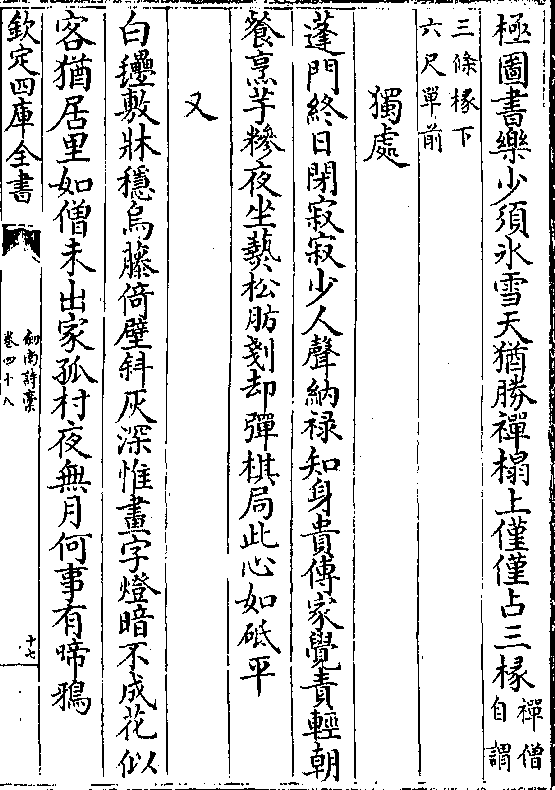 極圖書樂少須氷雪天猶勝禪榻上僅僅占三椽禪僧自謂
三條椽下六尺單前
獨處
蓬門終日閉寂寂少人聲納禄知身貴傳家覺責輕朝
餐烹芋糝夜坐爇松肪剗却彈棋局此心如砥平
又
白㲲敷牀穩烏藤倚壁斜灰深惟畫字燈暗不成花似
客猶居里如僧未出家孤村夜無月何事有啼鴉
欽定四庫全書
劍南詩藁
卷四十八
十七